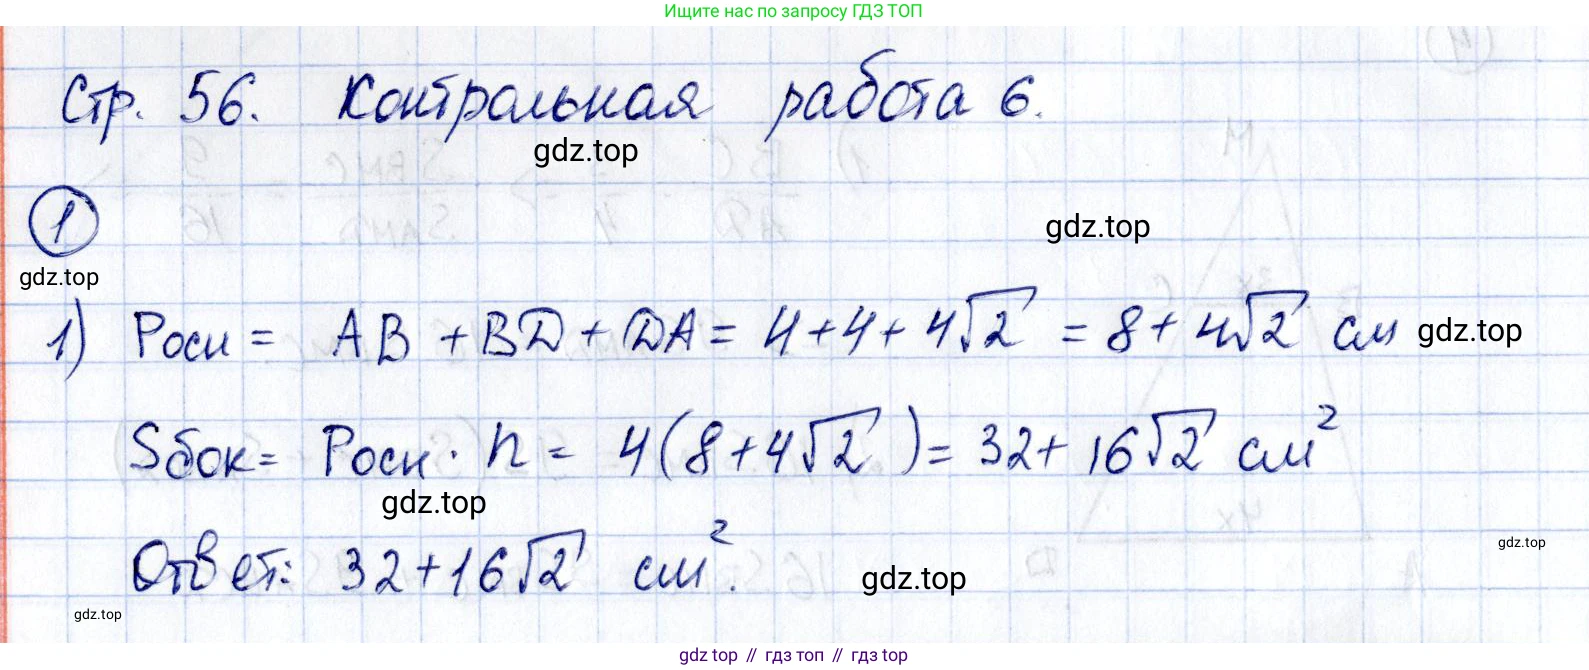 Ищите нас по запросу ГДЗ ТОП
Стр. 56. Контрольная работа 6.
gdz.top
1
gdz.top
gdz.top
1) Pосн = AB + BD + DA = 4 + 4 + 4√2 = 8 + 4√2 см gdz.top
Sбок = Pосн · h = 4(8 + 4√2) = 32 + 16√2 см²
gdz.top
gdz.top
Ответ: 32 + 16√2 см².
gdz.top
gdz.top
gdz top // гдз топ // гдз top